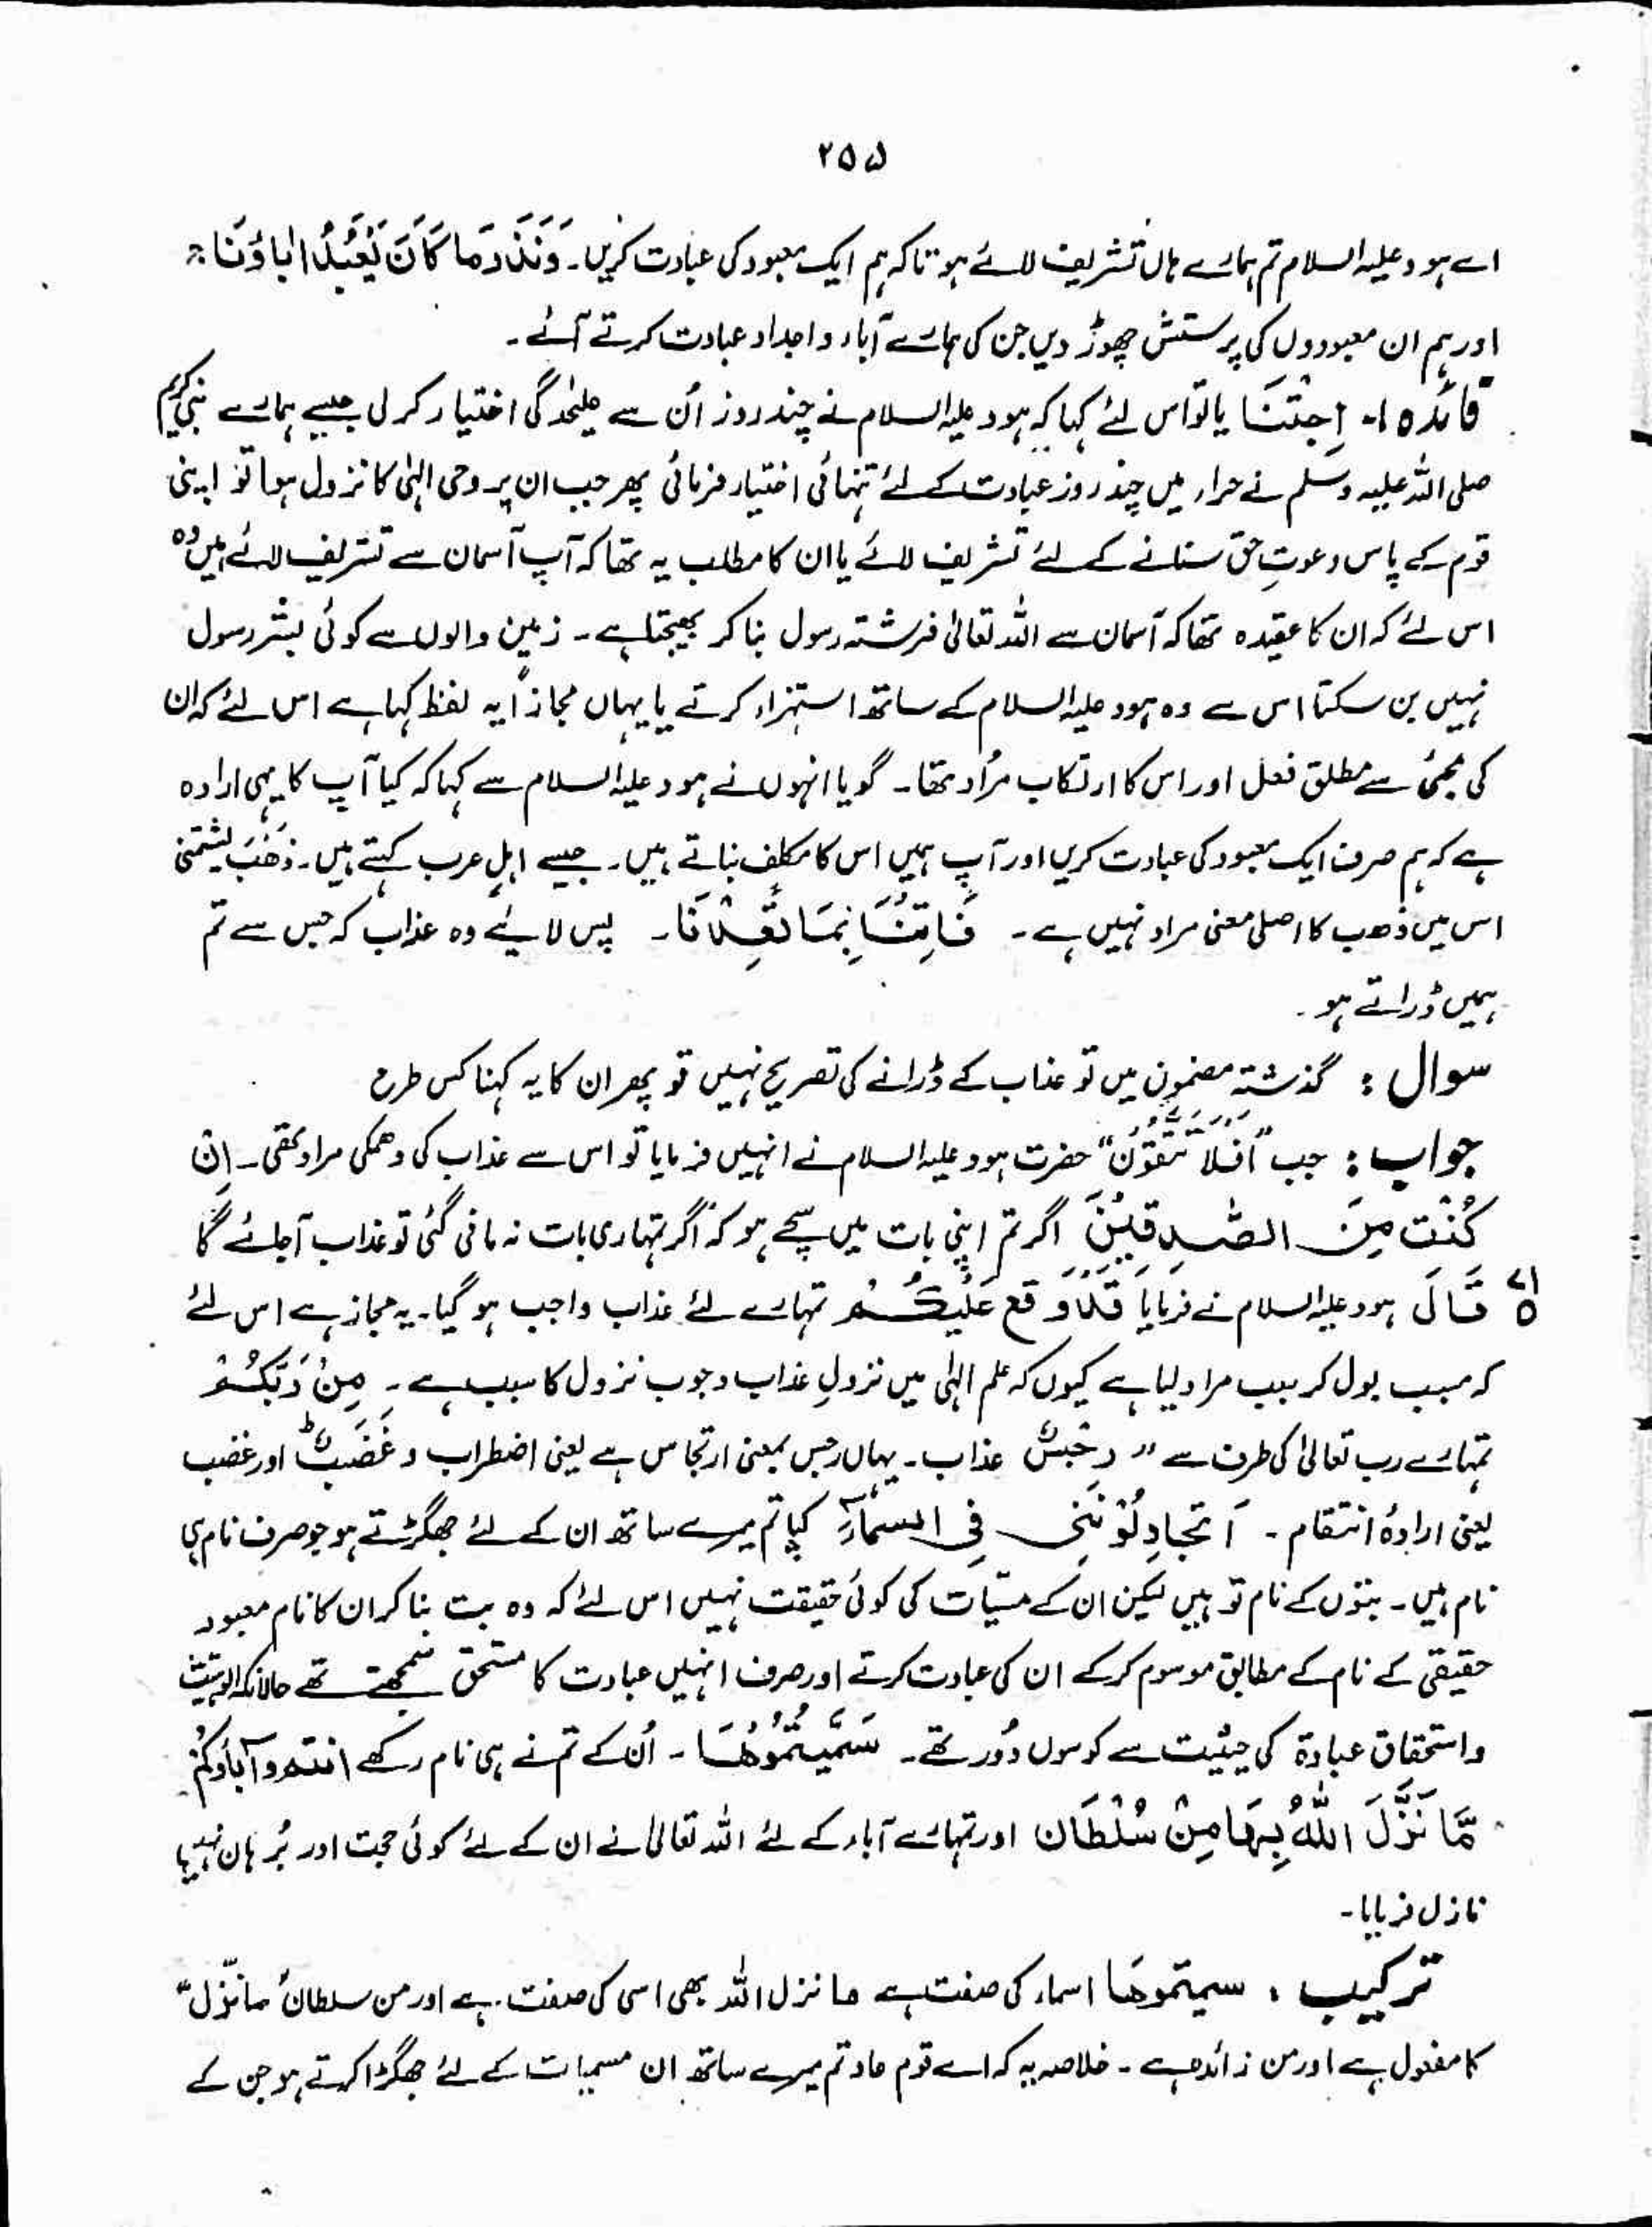 ۲۵۵
اے ہود علیہ السلام تم ہمارے ہاں تشریف لائے ہو تاکہ ہم ایک معبود کی عبادت کریں۔ وَنَذَرَ مَا كَانَ يَعْبُدُ اٰبَاؤُنَا:
اور ہم ان معبودوں کی پرستش چھوڑ دیں جن کی ہمارے آباء و اجداد عبادت کرتے آئے۔
فائدہ ا۔ اِجِئْتَنَا یا تو اس لئے کہا کہ ہود علیہ السلام نے چند روز اُن سے علیٰحدگی اختیار کر لی جیسے ہمارے نبی کریم
صلی اللہ علیہ وسلم نے حراء میں چند روز عبادت کے لئے تنہائی اختیار فرمائی پھر جب ان پر وحی الہٰی کا نزول ہوا تو اپنی
قوم کے پاس دعوتِ حق سنانے کے لئے تشریف لائے یا ان کا مطلب یہ تھا کہ آپ آسمان سے تشریف لائے ہیں وہ
اس لئے کہ ان کا عقیدہ تھا کہ آسمان سے اللہ تعالیٰ فرشتہ رسول بنا کر بھیجتا ہے۔ زمین والوں سے کوئی بشر رسول
نہیں بن سکتا اس سے وہ ہود علیہ السلام کے ساتھ استہزاء کرتے یا یہاں مجازاً یہ لفظ کہا ہے اس لئے کہ ان
کی مجئ سے مطلق فعل اور اس کا ارتکاب مُراد تھا۔ گویا انہوں نے ہود علیہ السلام سے کہا کہ کیا آپ کا یہی ارادہ
ہے کہ ہم صرف ایک معبود کی عبادت کریں اور آپ ہمیں اس کا مکلف بناتے ہیں۔ جیسے اہلِ عرب کہتے ہیں۔ ذَھَبَ یشتمنی
اس میں ذھب کا اصلی معنی مراد نہیں ہے۔ فَاْتِنَا بِمَا تَعِدُنَا۔ پس لائیے وہ عذاب کہ جس سے تم
ہمیں ڈراتے ہو۔
سوال : گذشتہ مضمون میں تو عذاب کے ڈرانے کی تصریح نہیں تو پھر ان کا یہ کہنا کس طرح
جواب : جب "اَفَلَا تَتَّقُوْنَ" حضرت ہود علیہ السلام نے انہیں فرمایا تو اس سے عذاب کی دھمکی مراد تھی۔ اِنْ
كُنْتَ مِنَ الصّٰدِقِيْنَ اگر تم اپنی بات میں سچے ہو کہ اگر تمہاری بات نہ مانی گئی تو عذاب آجائے گا
۷۱ قَالَ ہود علیہ السلام نے فرمایا قَدْ وَقَعَ عَلَيْكُمْ تمہارے لئے عذاب واجب ہو گیا۔ یہ مجاز ہے اس لئے
کہ مسبب بول کر سبب مراد لیا ہے کیوں کہ علم الہٰی میں نزولِ عذاب وجوب نزول کا سبب ہے۔ مِنْ رَّبِّكُمْ
تمہارے رب تعالیٰ کی طرف سے " رِجْسٌ عذاب۔ یہاں رجس بمعنی ارتجاس ہے یعنی اضطراب وَ غَضَبٌ ط اور غضب
یعنی ارادۂ انتقام۔ اَتُجَادِلُوْنَنِىْ فِى اَسْمَآءٍ کیا تم میرے ساتھ ان کے لئے جھگڑتے ہو جو صرف نام ہی
نام ہیں۔ بتوں کے نام تو ہیں لیکن ان کے مسمیات کی کوئی حقیقت نہیں اس لئے کہ وہ بت بنا کر ان کا نام معبود
حقیقی کے نام کے مطابق موسوم کرکے ان کی عبادت کرتے اور صرف انہیں عبادت کا مستحق سمجھتے تھے حالانکہ الوہیت
واستحقاق عبادۃ کی حیثیت سے کوسوں دُور تھے۔ سَمَّيْتُمُوْهَا۔ اُن کے تم نے ہی نام رکھے انتم وآباؤكم
مَّا نَزَّلَ اللّٰهُ بِهَا مِنْ سُلْطَان اور تمہارے آباء کے لئے اللہ تعالیٰ نے ان کے لئے کوئی حجت اور بُرہان نہیں
نازل فرمایا۔
ترکیب : سمیتموھا اسماء کی صفت ہے ما نزل اللہ بھی اسی کی صفت ہے اور من سلطان "ما نَزّل"
کا مفعول ہے اور من زائدہ ہے۔ خلاصہ یہ کہ اے قوم عاد تم میرے ساتھ ان مسمیات کے لئے جھگڑا کرتے ہو جن کے